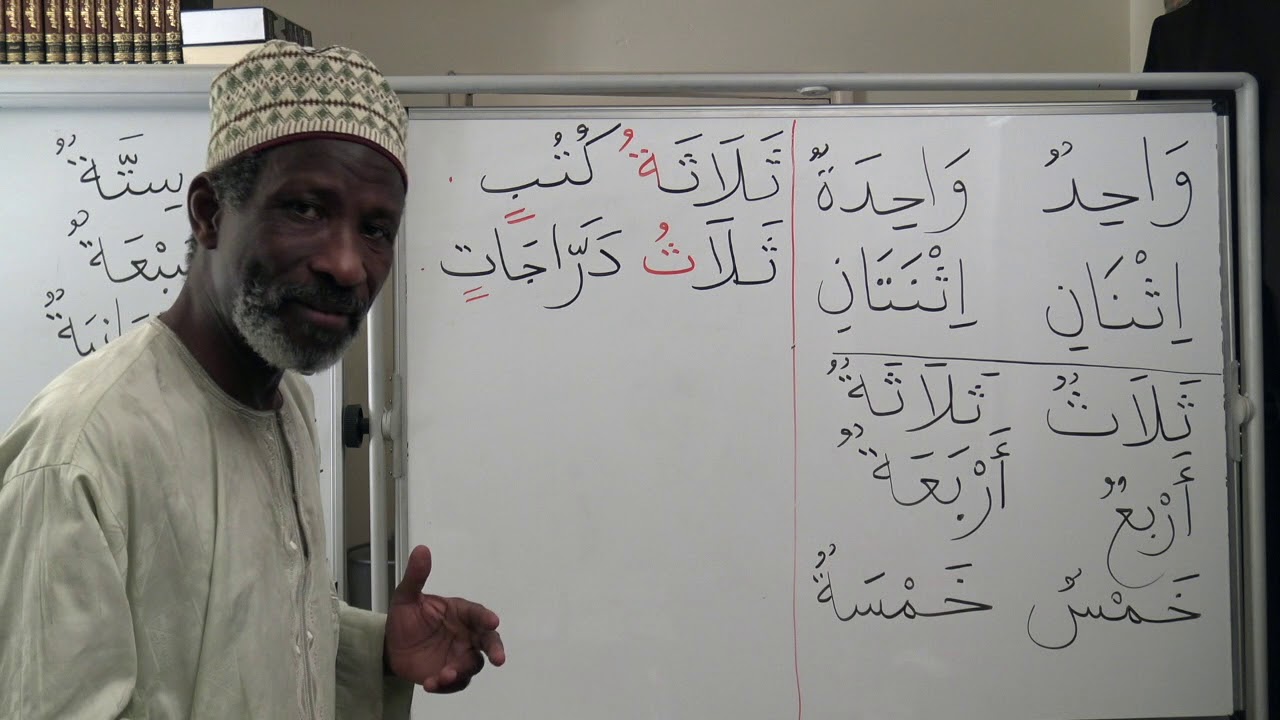 وَاحِدٌ وَاحِدَةٌ
اِثْنَانِ اِثْنَتَانِ
ثَلَاثٌ ثَلَاثَةٌ
أَرْبَعٌ أَرْبَعَةٌ
خَمْسٌ خَمْسَةٌ
ثَلَاثَةُ كُتُبٍ .
ثَلَاثُ دَرَّاجَاتٍ .
سِتَّةٌ
سَبْعَةٌ